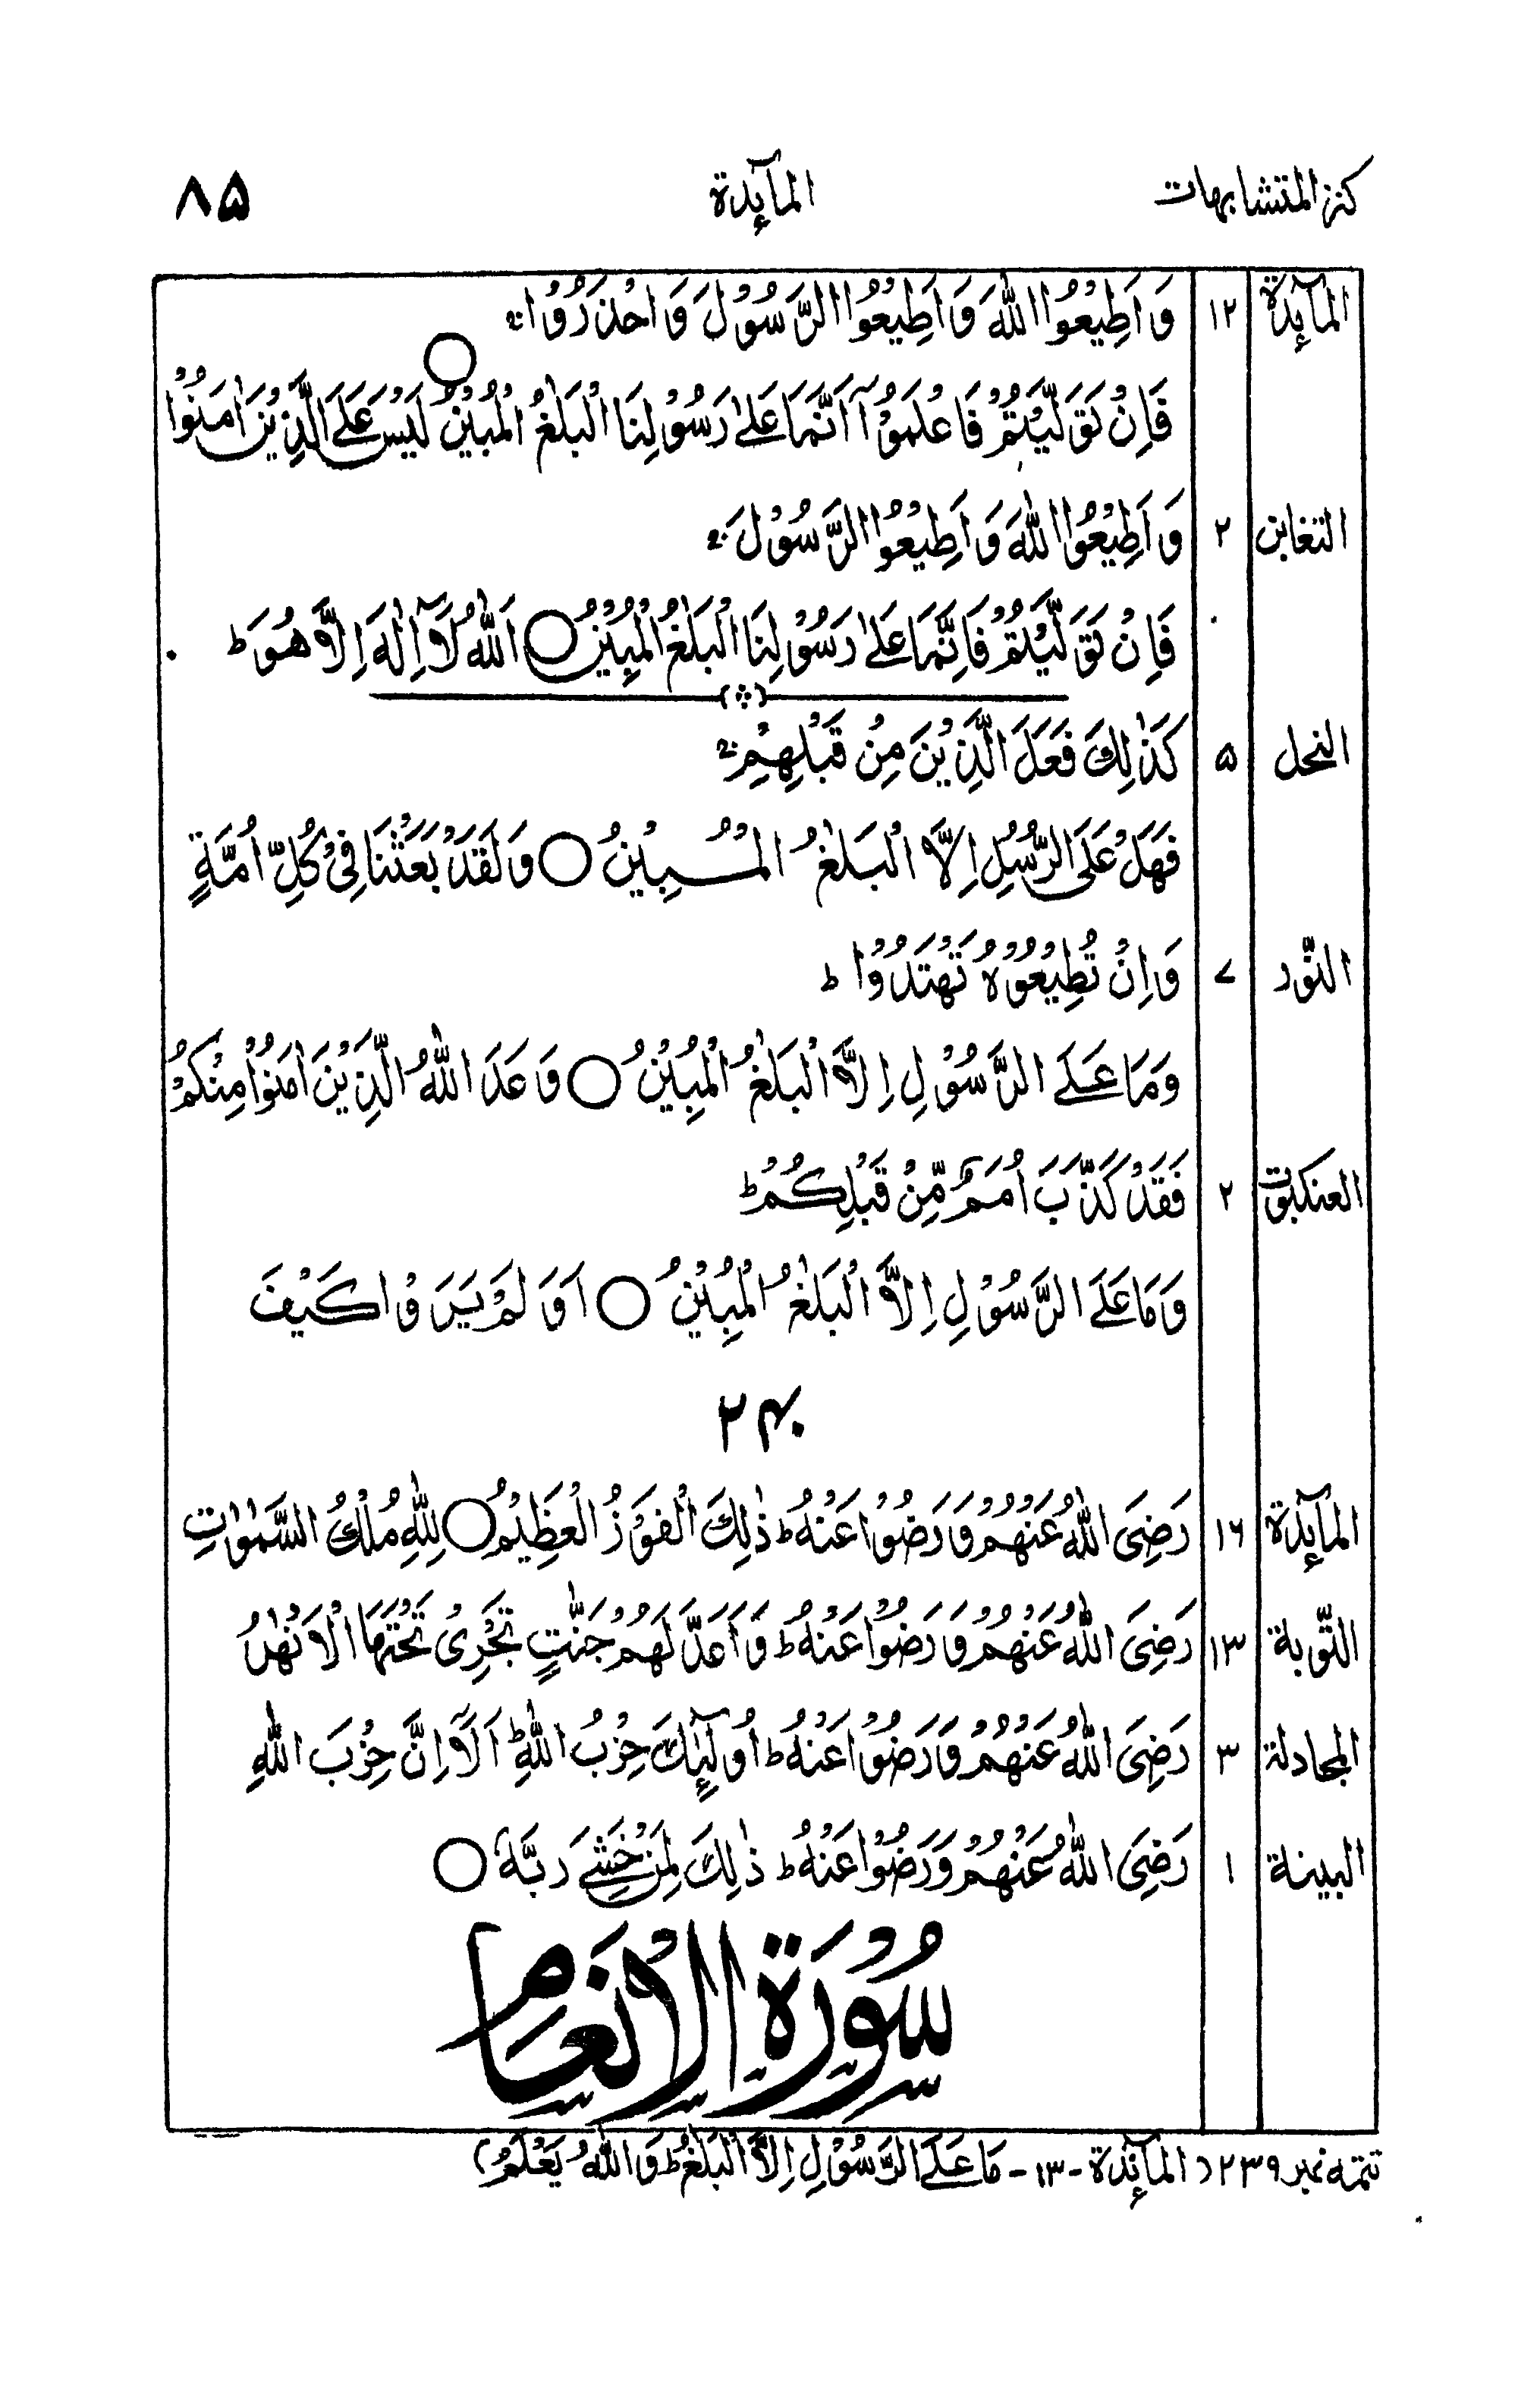 كنز المتشابهات المآئدة ٨٥
المآئدة ١٢ وَاَطِيْعُوا اللّٰهَ وَاَطِيْعُوا الرَّسُوْلَ وَاحْذَرُوْا ۚ
فَاِنْ تَوَلَّيْتُمْ فَاعْلَمُوْٓا اَنَّمَا عَلٰى رَسُوْلِنَا الْبَلٰغُ الْمُبِيْنُ ○ لَيْسَ عَلَى الَّذِيْنَ اٰمَنُوْا
التغابن ٢ وَاَطِيْعُوا اللّٰهَ وَاَطِيْعُوا الرَّسُوْلَ ۚ
فَاِنْ تَوَلَّيْتُمْ فَاِنَّمَا عَلٰى رَسُوْلِنَا الْبَلٰغُ الْمُبِيْنُ ○ اَللّٰهُ لَآ اِلٰهَ اِلَّا هُوَ ؕ
النحل ٥ كَذٰلِكَ فَعَلَ الَّذِيْنَ مِنْ قَبْلِهِمْ ۚ
فَهَلْ عَلَى الرُّسُلِ اِلَّا الْبَلٰغُ الْمُبِيْنُ ○ وَلَقَدْ بَعَثْنَا فِيْ كُلِّ اُمَّةٍ
النّور ٧ وَاِنْ تُطِيْعُوْهُ تَهْتَدُوْا ؕ
وَمَا عَلَى الرَّسُوْلِ اِلَّا الْبَلٰغُ الْمُبِيْنُ ○ وَعَدَ اللّٰهُ الَّذِيْنَ اٰمَنُوْا مِنْكُمْ
العنكبوت ٢ فَقَدْ كَذَّبَ اُمَمٌ مِّنْ قَبْلِكُمْ ؕ
وَمَا عَلَى الرَّسُوْلِ اِلَّا الْبَلٰغُ الْمُبِيْنُ ○ اَوَلَمْ يَرَوْا كَيْفَ
٢٤٠
المآئدة ١٦ رَضِيَ اللّٰهُ عَنْهُمْ وَرَضُوْا عَنْهُ ؕ ذٰلِكَ الْفَوْزُ الْعَظِيْمُ ○ لِلّٰهِ مُلْكُ السَّمٰوٰتِ
التّوبة ١٣ رَضِيَ اللّٰهُ عَنْهُمْ وَرَضُوْا عَنْهُ ؕ وَاَعَدَّ لَهُمْ جَنّٰتٍ تَجْرِيْ تَحْتَهَا الْاَنْهٰرُ
المجادلة ٣ رَضِيَ اللّٰهُ عَنْهُمْ وَرَضُوْا عَنْهُ ؕ اُولٰٓئِكَ حِزْبُ اللّٰهِ ؕ اَلَآ اِنَّ حِزْبَ اللّٰهِ
البينة ١ رَضِيَ اللّٰهُ عَنْهُمْ وَرَضُوْا عَنْهُ ؕ ذٰلِكَ لِمَنْ خَشِيَ رَبَّهٗ ○
سُوْرَةُ الْاَنْعَامِ
تتمه نمبر ٢٣٩ (المآئدة - ١٣ - مَا عَلَى الرَّسُوْلِ اِلَّا الْبَلٰغُ ؕ وَاللّٰهُ يَعْلَمُ)